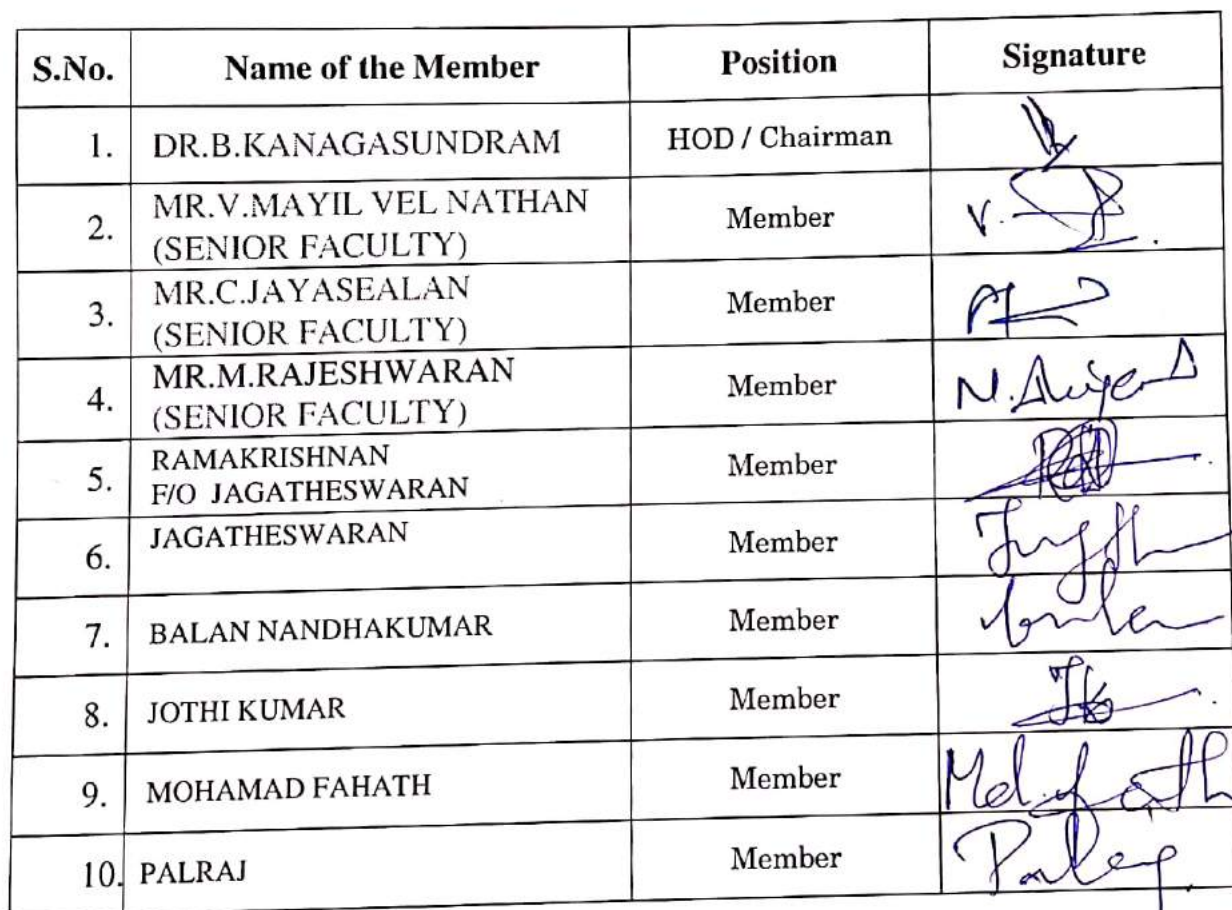 S.No. Name of the Member Position Signature
1. DR.B.KANAGASUNDRAM HOD / Chairman
2. MR.V.MAYIL VEL NATHAN
(SENIOR FACULTY) Member V.
3. MR.C.JAYASEALAN
(SENIOR FACULTY) Member
4. MR.M.RAJESHWARAN
(SENIOR FACULTY) Member
5. RAMAKRISHNAN
F/O JAGATHESWARAN Member
6. JAGATHESWARAN Member
7. BALAN NANDHAKUMAR Member
8. JOTHI KUMAR Member
9. MOHAMAD FAHATH Member
10. PALRAJ Member